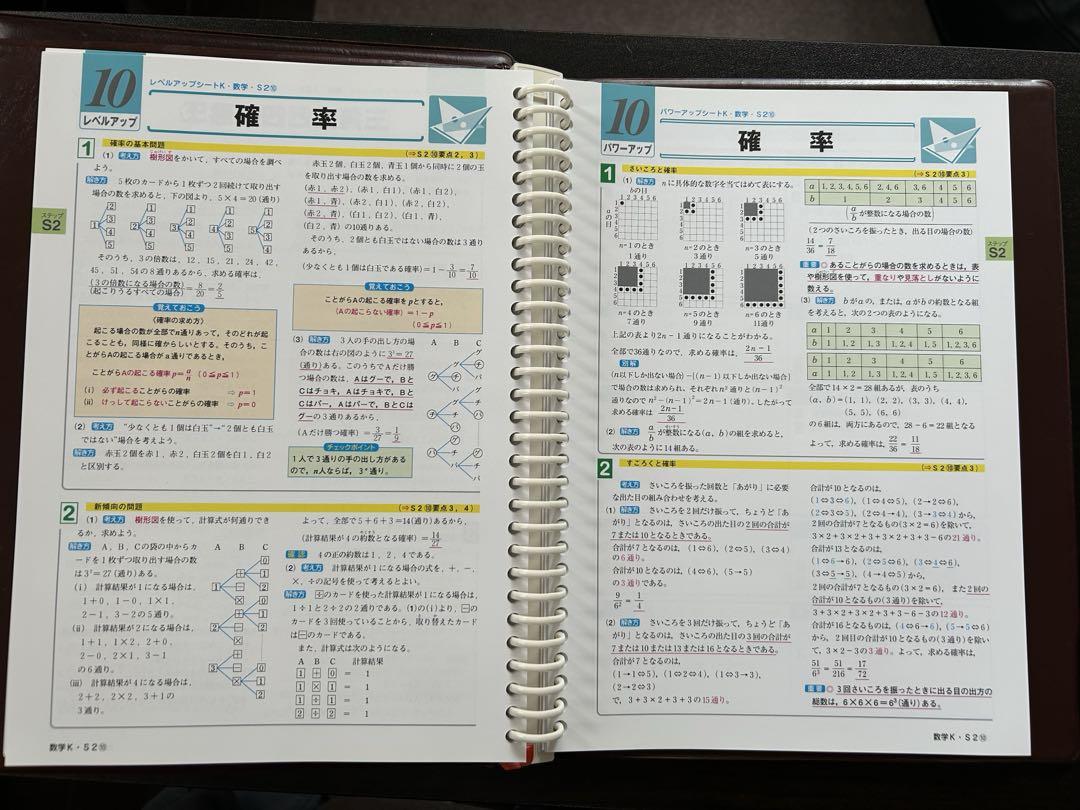 10
レベルアップ
レベルアップシートK・数学・S2⑩
確 率
1 確率の基本問題 (⇒S2⑩要点2, 3)
(1) 考え方 樹形図をかいて，すべての場合を調べ
よう。
解き方 5枚のカードから1枚ずつ2回続けて取り出
す場合の数を求めると，下の図より，5×4=20(通り)
そのうち，3の倍数は，12，15，21，24，42，
45，51，54の8通りあるから，求める確率は，
(3の倍数になる場合の数)/(起こりうるすべての場合)=8/20=2/5
覚えておこう
〈確率の求め方〉
起こる場合の数が全部でn通りあって，そのどれが起
こることも，同様に確からしいとする。そのうち，こ
とがらAの起こる場合がa通りであるとき，
ことがらAの起こる確率 p=a/n (0≦p≦1)
(i) 必ず起こることがらの確率 ⇨ p=1
(ii) けっして起こらないことがらの確率 ⇨ p=0
(2) 考え方 “少なくとも1個は白玉”→“2個とも白玉
ではない”場合を考えよう。
解き方 赤玉2個を赤1，赤2，白玉2個を白1，白2
と区別する。
赤玉2個，白玉2個，青玉1個から同時に2個の玉
を取り出す場合の数を求める。
(赤1，赤2)，(赤1，白1)，(赤1，白2)，
(赤1，青)，(赤2，白1)，(赤2，白2)，
(赤2，青)，(白1，白2)，(白1，青)，
(白2，青)の10通りある。
そのうち，2個とも白玉ではない場合の数は3通り
あるから，
(少なくとも1個は白玉である確率)=1-3/10=7/10
覚えておこう
ことがらAの起こる確率をpとすると，
(Aの起こらない確率)=1-p
(0≦p≦1)
(3) 解き方 3人の手の出し方の場
合の数は右の図のように3³=27
(通り)ある。このうちでAだけ勝
つ場合の数は，Aはグーで，Bと
Cはチョキ，Aはチョキで，Bと
Cはパー，Aはパーで，BとCは
グーの3通りあるから，
(Aだけ勝つ確率)=3/27=1/9
チェックポイント
1人で3通りの手の出し方がある
ので，n人ならば，3ⁿ通り。
A B C
ステップ
S2
2 新傾向の問題 (⇒S2⑩要点3, 4)
(1) 考え方 樹形図を使って，計算式が何通りでき
るか，求めよう。
解き方 A，B，Cの袋の中からカ
ードを1枚ずつ取り出す場合の数
は3³=27(通り)ある。
(i) 計算結果が1になる場合は，
1+0，1-0，1×1，
2-1，3-2の5通り。
(ii) 計算結果が2になる場合は，
1+1，1×2，2+0，
2-0，2×1，3-1
の6通り。
(iii) 計算結果が4になる場合は，
2+2，2×2，3+1の
3通り。
A B C
よって，全部で5+6+3=14(通り)あるから，
(計算結果が4の約数となる確率)=14/27
確認 4の正の約数は1，2，4である。
(2) 考え方 計算結果が1になる場合の式を，+，-，
×，÷の記号を使って考えるとよい。
解き方 ÷のカードを使った計算結果が1になる場合は，
1÷1と2÷2の2通りである。(1)の(i)より，－の
カードを3回使っていることから，取り替えたカード
は－のカードである。
また，計算式は次のようになる。
A B C 計算結果
1 + 0 = 1
1 × 1 = 1
1 ÷ 1 = 1
2 ÷ 2 = 1
数学K・S2⑩
10
パワーアップ
パワーアップシートK・数学・S2⑩
確 率
1 さいころと確率 (⇒S2⑩要点3)
(1) 解き方 nに具体的な数字を当てはめて表にする。
bの目
aの目
n=1のとき
1通り
n=2のとき
3通り
n=3のとき
5通り
n=4のとき
7通り
n=5のとき
9通り
n=6のとき
11通り
上記の表より2n-1通りになることがわかる。
全部で36通りなので，求める確率は，(2n-1)/36
別解
(n以下しか出ない場合)-{(n-1)以下しか出ない場合}
で場合の数は求められ，それぞれn²通りと(n-1)²
通りなのでn²-(n-1)²=2n-1(通り)。したがって
求める確率は(2n-1)/36
(2) 解き方 a/bが整数になる(a，b)の組を求めると，
次の表のように14組ある。
a 1, 2, 3, 4, 5, 6 2, 4, 6 3, 6 4 5 6
b 1 2 3 4 5 6
(a/bが整数になる場合の数)
(2つのさいころを振ったとき，出る目の場合の数)
14/36=7/18
重要 ◎あることがらの場合の数を求めるときは，表
や樹形図を使って，重なりや見落としがないように
数える。
(3) 解き方 bがaの，または，aがbの約数となる組
を考えると，次の2つの表のようになる。
a 1 2 3 4 5 6
b 1 1, 2 1, 3 1, 2, 4 1, 5 1, 2, 3, 6
b 1 2 3 4 5 6
a 1 1, 2 1, 3 1, 2, 4 1, 5 1, 2, 3, 6
全部で14×2=28組あるが，表のうち
(a，b)=(1，1)，(2，2)，(3，3)，(4，4)，
(5，5)，(6，6)
の6組は，両方にあるので，28-6=22組となる
よって，求める確率は，22/36=11/18
ステップ
S2
2 すごろくと確率 (⇒S2⑩要点3)
考え方 さいころを振った回数と「あがり」に必要
な出た目の組み合わせを考える。
(1) 解き方 さいころを2回だけ振って，ちょうど「あ
がり」となるのは，さいころの出た目の2回の合計が
7または10となるときである。
合計が7となるのは，(1⇔6)，(2⇔5)，(3⇔4)の
6通り。
合計が10となるのは，(4⇔6)，(5→5)
の3通りである。
9/6²=1/4
(2) 解き方 さいころを3回だけ振って，ちょうど「あ
がり」となるのは，さいころの出た目の3回の合計が
7または10または13または16となるときである。
合計が7となるのは，
(1→1⇔5)，(1⇔2⇔4)，(1⇔3→3)，
(2→2⇔3)
で，3+3×2+3+3の15通り。
合計が10となるのは，
(1⇔3⇔6)，(1⇔4⇔5)，(2→2⇔6)，
(2⇔3⇔5)，(2⇔4→4)，(3→3⇔4)から，
2回の合計が7となるもの(3×2=6)を除いて，
3×2+3×2+3+3×2+3+3-6の21通り。
合計が13となるのは，
(1⇔6→6)，(2⇔5⇔6)，(3⇔4⇔6)，
(3⇔5→5)，(4→4⇔5)から，
2回の合計が7となるもの(3×2=6)，また2回の
合計が10となるもの(3通り)を除いて，
3+3×2+3×2+3+3-6-3の12通り。
合計が16となるものは，(4⇔6→6)，(5→5⇔6)
から，2回目の合計が10となるもの(3通り)を除い
て，3×2-3の3通り。よって，求める確率は，
51/6³=51/216=17/72
重要 ◎3回さいころを振ったときに出る目の出方の
総数は，6×6×6=6³(通り)ある。
数学K・S2⑩